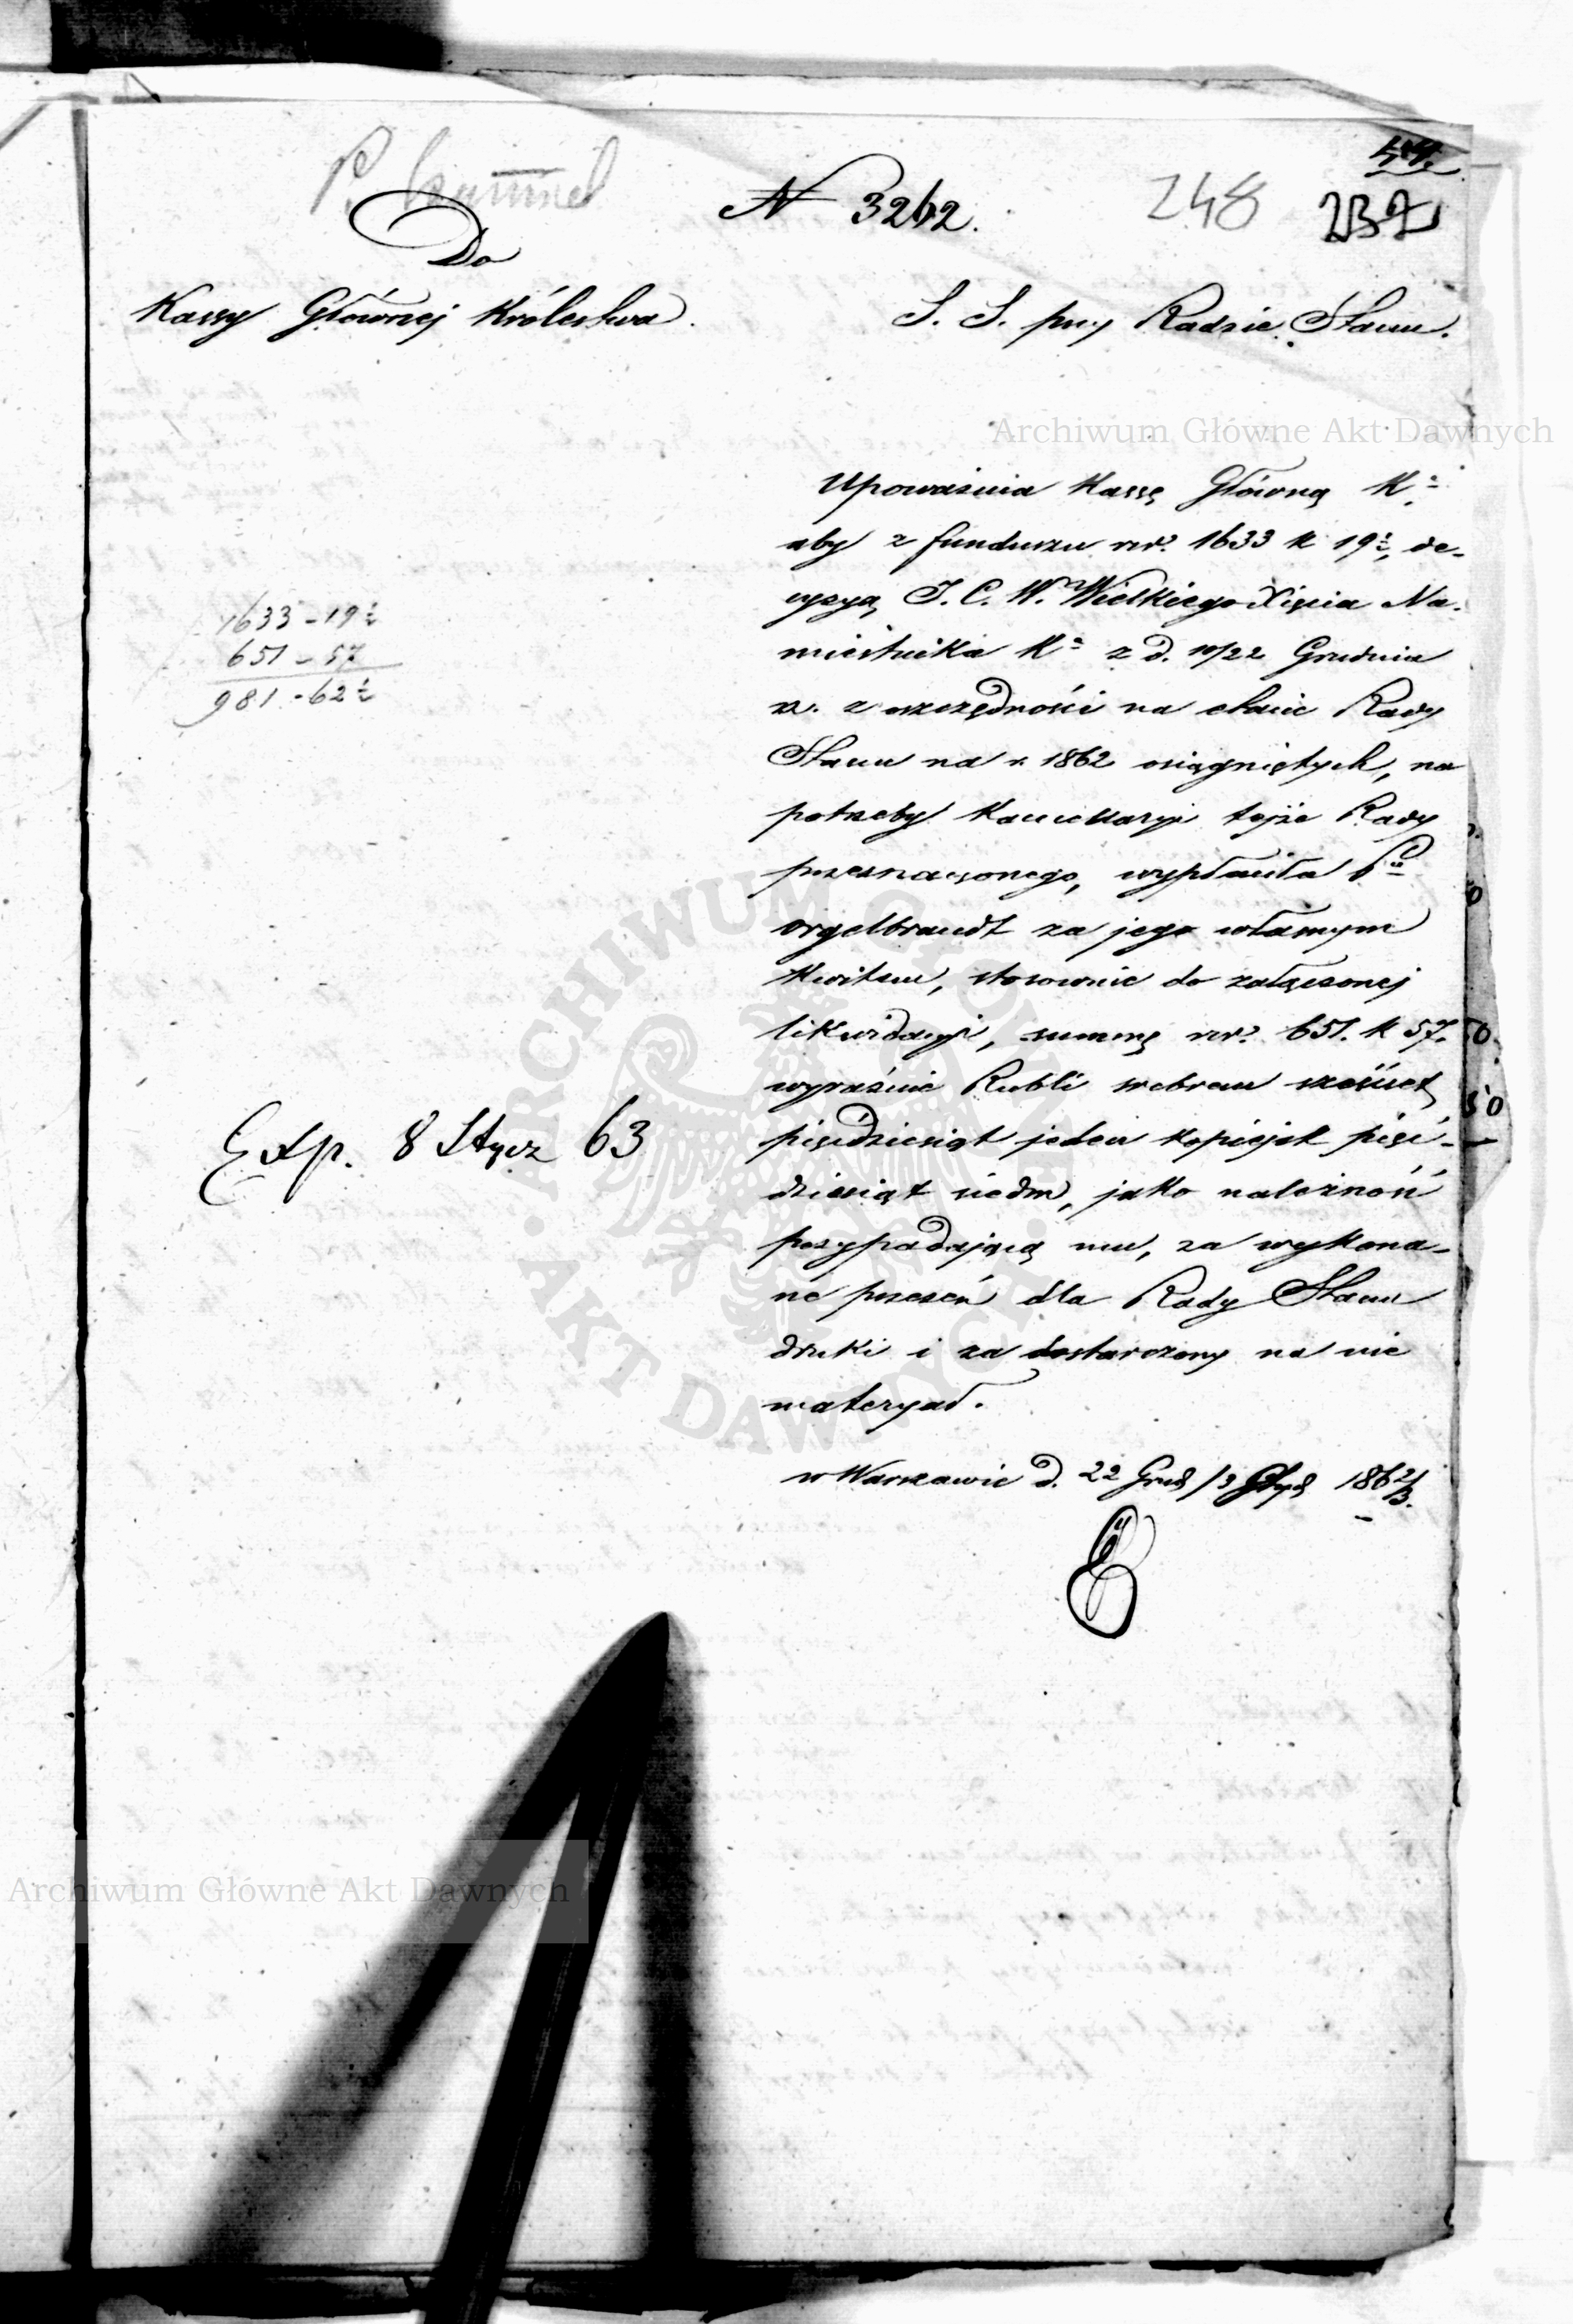 N 3262.
248
237
Do
Kassy Głównej Królestwa.
S. S. przy Radzie Stanu.
Archiwum Główne Akt Dawnych
Upoważnia Kassę Główną K.ª
aby z funduszu rsr. 1633 k 19½, de-
cyzyą J. C. W. Wielkiego Xięcia Na-
miestnika K.ª z d. 10/22 Grudnia
z oszczędności na etacie Rady
Stanu na r. 1862 osiągniętych, na
potrzeby Kancellaryi tejże Rady
przeznaczonego, wypłaciła P.
Orgelbrandt za jego własnym
kwitem, stosownie do załączonej
likwidacyi, summę rsr. 651. k 57.
wyraźnie Rubli srebrem sześćset
pięćdziesiąt jeden kopiejek pięć-
dziesiąt siedm, jako należność
przypadającą mu, za wykona-
ne przezeń dla Rady Stanu
druki i za dostarczony na nie
materyał.
w Warszawie d. 22 Grud/3 1862/3.
1633 - 19½
651 - 57
981 - 62½
Exp. 8 Stycz 63
ARCHIWUM GŁÓWNE
AKT DAWNYCH
Archiwum Główne Akt Dawnych